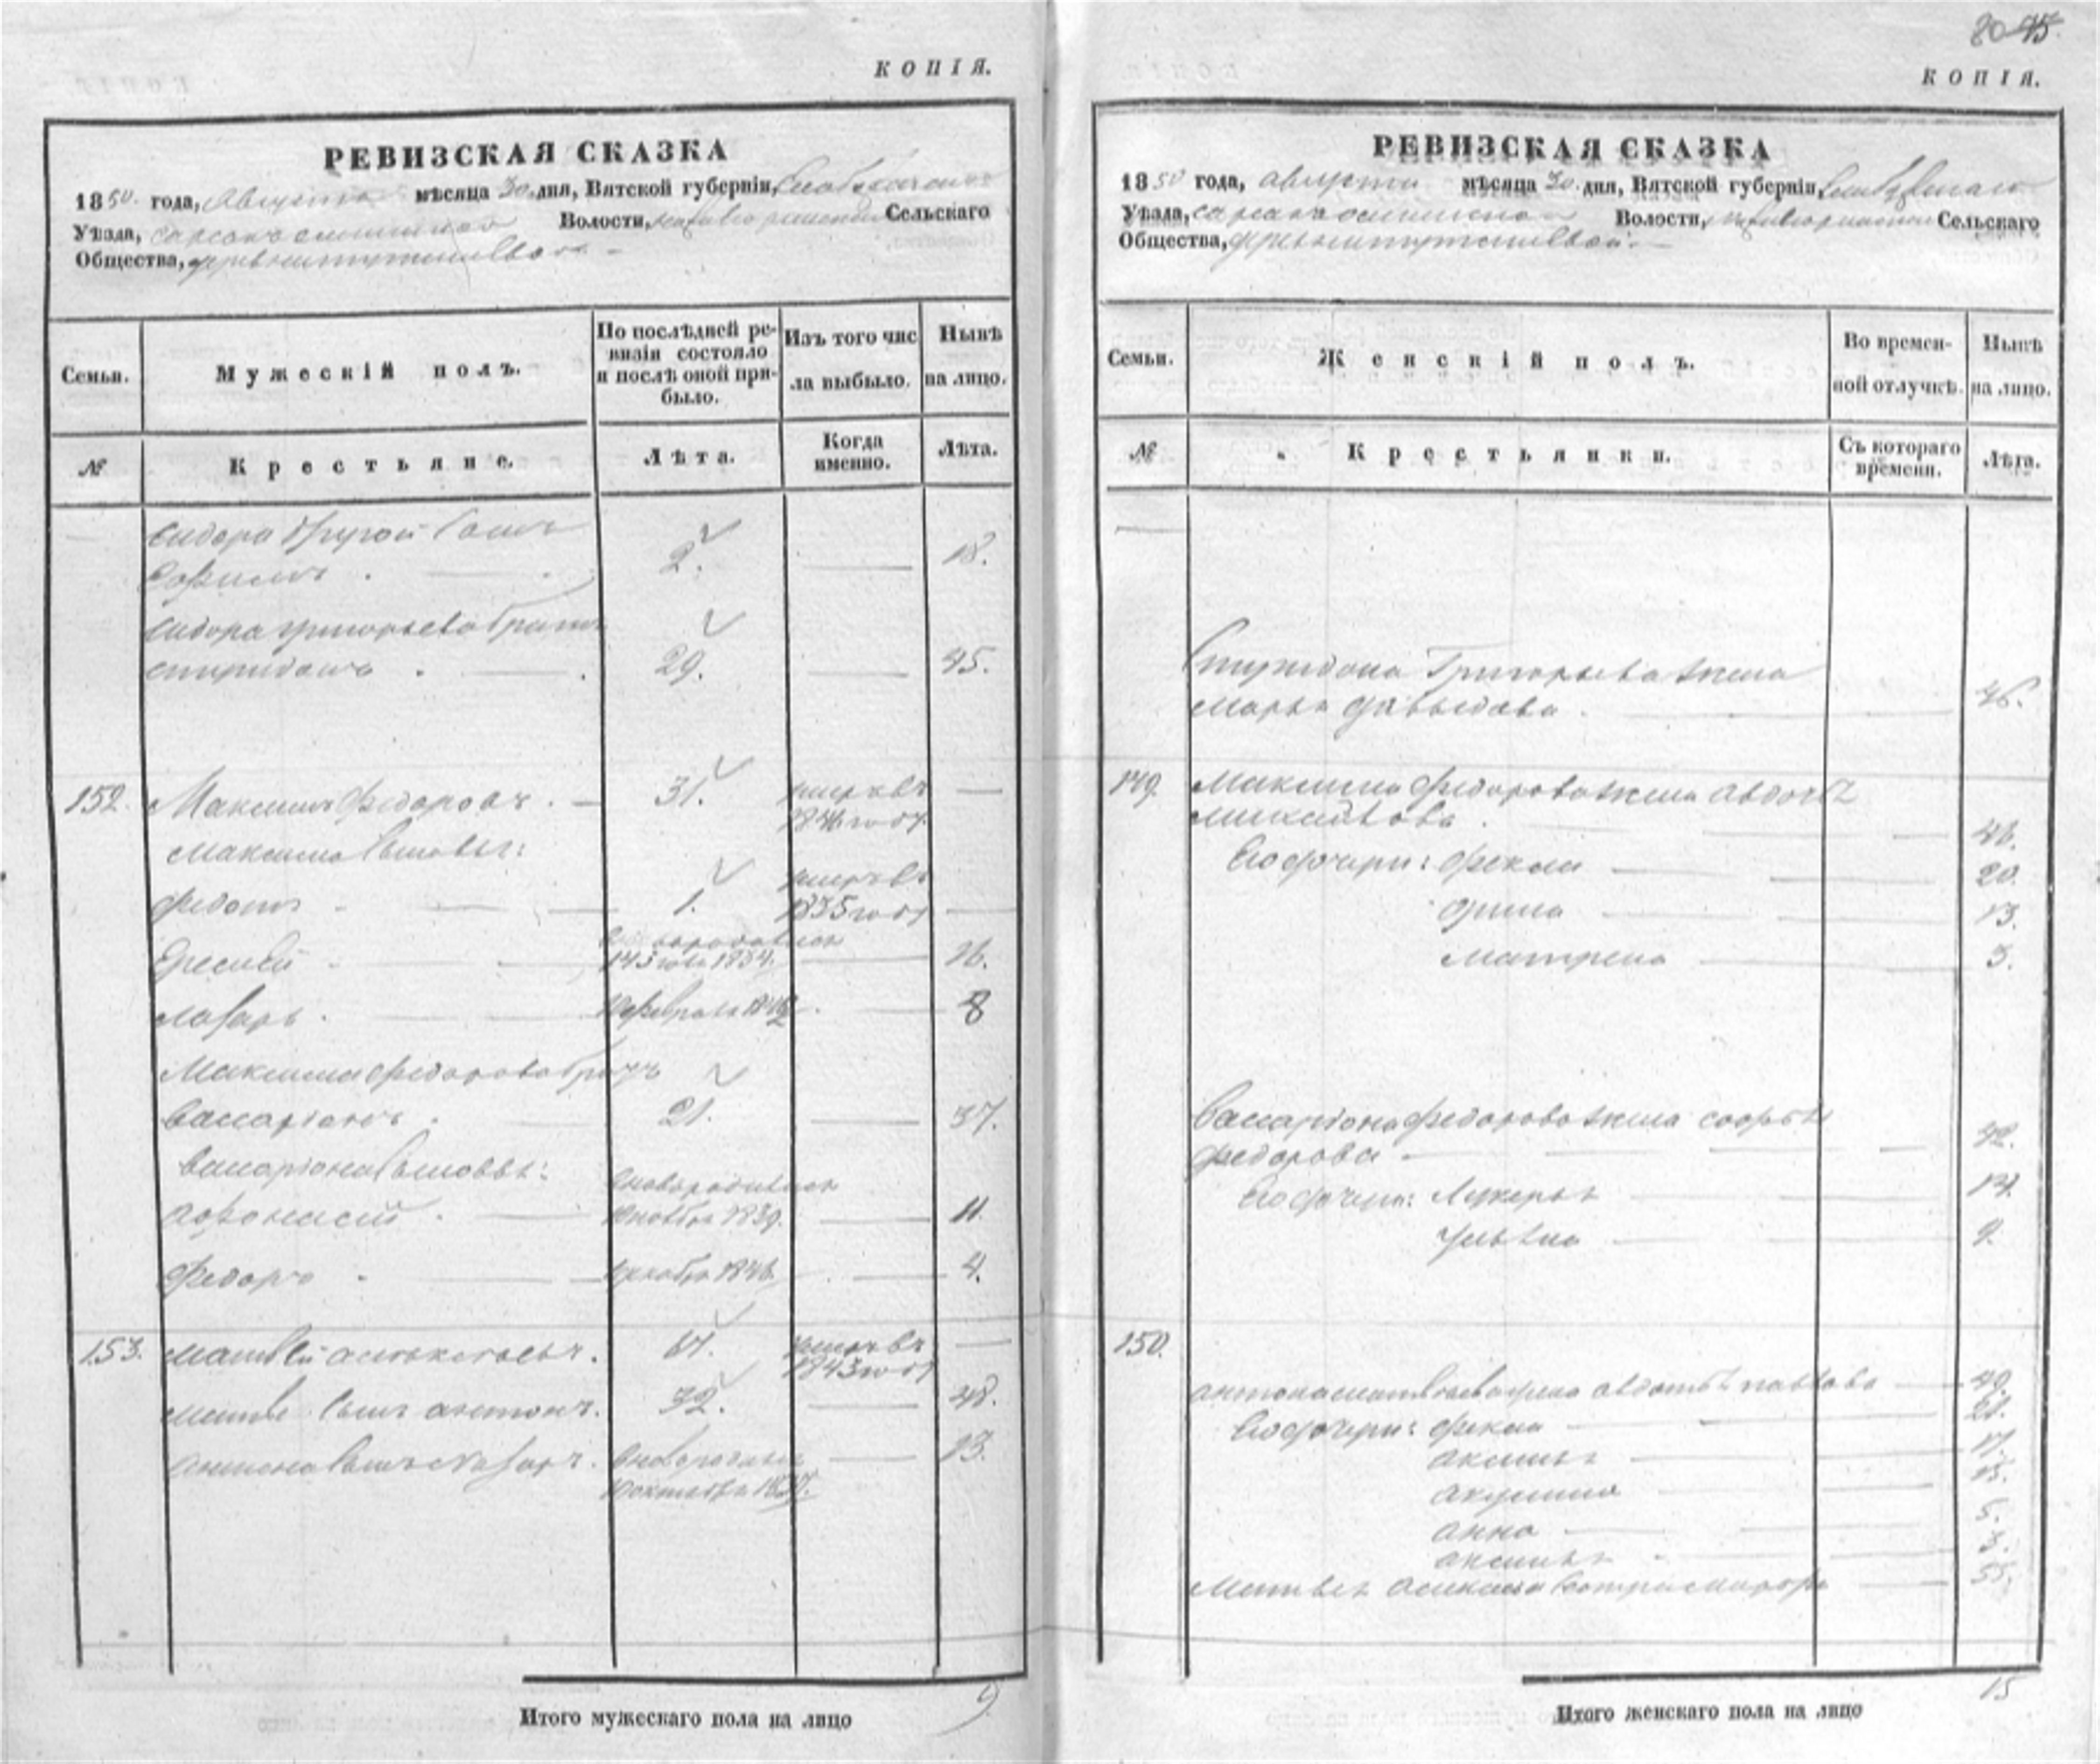 КОПІЯ.
РЕВИЗСКАЯ СКАЗКА
1850 года, Августа мѣсяца 30 дня, Вятской губерніи,
Уѣзда, Волости, Сельскаго
Общества,
Семьи. Мужескій полъ. По послѣдней ревизіи состояло и послѣ оной прибыло. Изъ того числа выбыло. Нынѣ на лицо.
№ Крестьяне. Лѣта. Когда именно. Лѣта.
Сидора другой сынъ
2. 18.
Сидора Григорьева братъ
Спиридонъ 29. 45.
152. Максимъ Федоровъ. 31. умеръ въ
1846 году
Максима сыновья:
умеръ въ
Федотъ 1. 1835 году
1834. 16.
Лазарь. февраля 1842. 8
Максима Федорова братъ
Вассаріонъ. 21. 37.
Вассаріона сыновья:
новорожден
Афонасій. ноября 1839. 11.
Федоръ декабря 1846. 4.
153. Матвей Алексеевъ. 64. умеръ въ
1843 году
Матвея сынъ Антонъ. 32. 48.
Антона сынъ Назаръ. новорожден 13.
октября 1837.
Итого мужескаго пола на лицо 9
80 45
КОПІЯ.
РЕВИЗСКАЯ СКАЗКА
1850 года, августа мѣсяца 30 дня, Вятской губерніи,
Уѣзда, Волости, Сельскаго
Общества,
Семьи. Женскій полъ. Во временной отлучкѣ. Нынѣ на лицо.
№ Крестьянки. Съ котораго времени. Лѣта.
Спиридона Григорьева жена
Марья Давыдова. 46.
149. Максима Федорова жена Авдотья
Михайлова. 46.
Его дочери: Фекла 20.
Орина 13.
Матрена 3.
Вассаріона Федорова жена Софья
Федорова 42.
Его дочери: Лукерья 14.
Ульяна 9.
150.
Антона Матвеева жена Авдотья Павлова 49.
Его дочери: Фекла 21.
Аксинья 17.
Акулина 15.
Анна 5.
Аксинья 3.
Матвея Алексеева сестра 55.
Итого женскаго пола на лицо 15